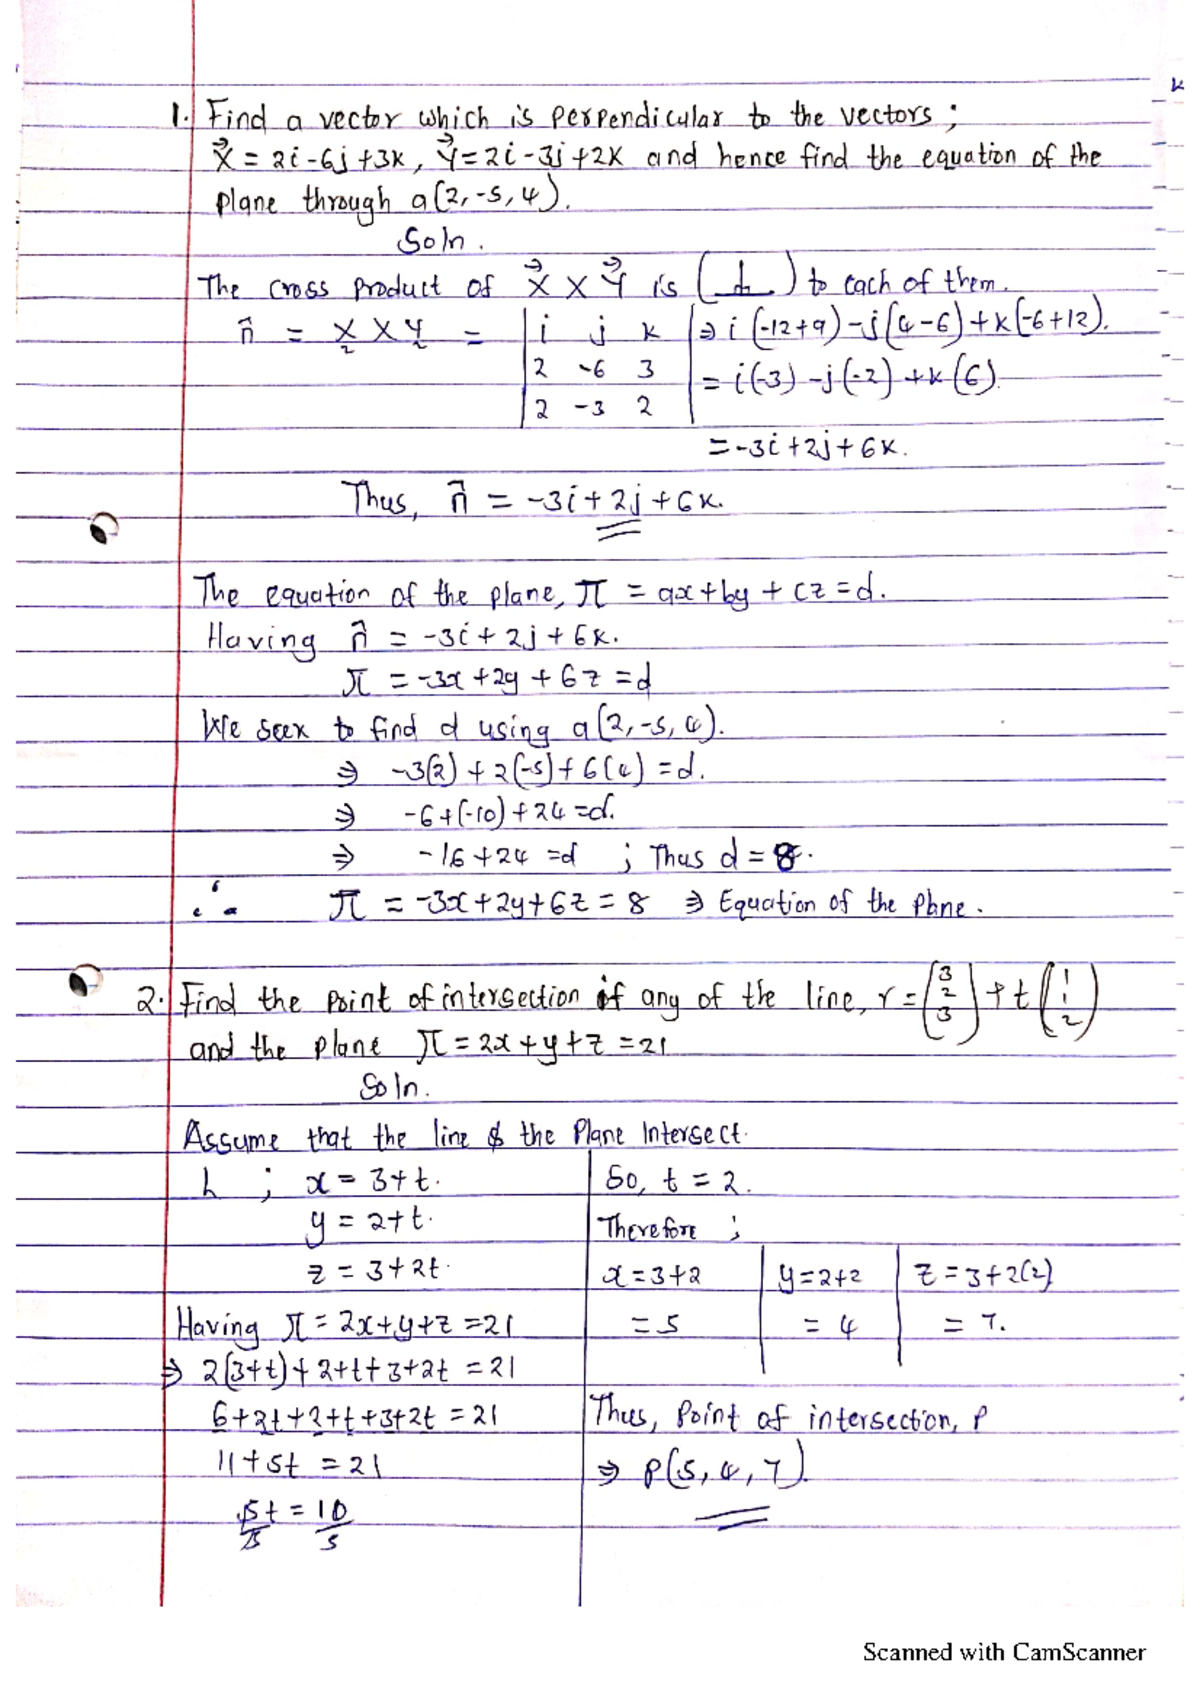 1. Find a vector which is perpendicular to the vectors;
X = 2i-6j+3k, Y = 2i-3j+2k and hence find the equation of the
plane through a(2,-5,4).
Soln.
The cross product of X x Y is (⊥) to each of them.
n̂ = X x Y = | i j k | ⇒ i(-12+9) -j(4-6)+k(-6+12).
2 -6 3 = i(-3) -j(-2) +k(6)
2 -3 2
= -3i+2j+6k.
Thus, n̂ = -3i+2j+6k.
The equation of the plane, π = ax+by+cz=d.
Having n̂ = -3i+2j+6k.
π = -3x+2y+6z=d
We seek to find d using a(2,-5,4).
⇒ -3(2)+2(-5)+6(4)=d.
⇒ -6+(-10)+24=d.
⇒ -16+24=d ; Thus d=8.
∴ π = -3x+2y+6z=8 ⇒ Equation of the plane.
2. Find the point of intersection if any of the line, r = (3 2 3) + t (1 1 2)
and the plane π = 2x+y+z=21
Soln.
Assume that the line & the plane Intersect.
L ; x = 3+t.
y = 2+t.
z = 3+2t.
Having π = 2x+y+z=21
⇒ 2(3+t)+2+t+3+2t = 21
6+2t+2+t+3+2t = 21
11+5t = 21
5t/5 = 10/5
So, t = 2.
Therefore ;
x=3+2 y=2+2 z=3+2(2)
=5 =4 =7.
Thus, Point of intersection, P
⇒ P(5,4,7)
Scanned with CamScanner